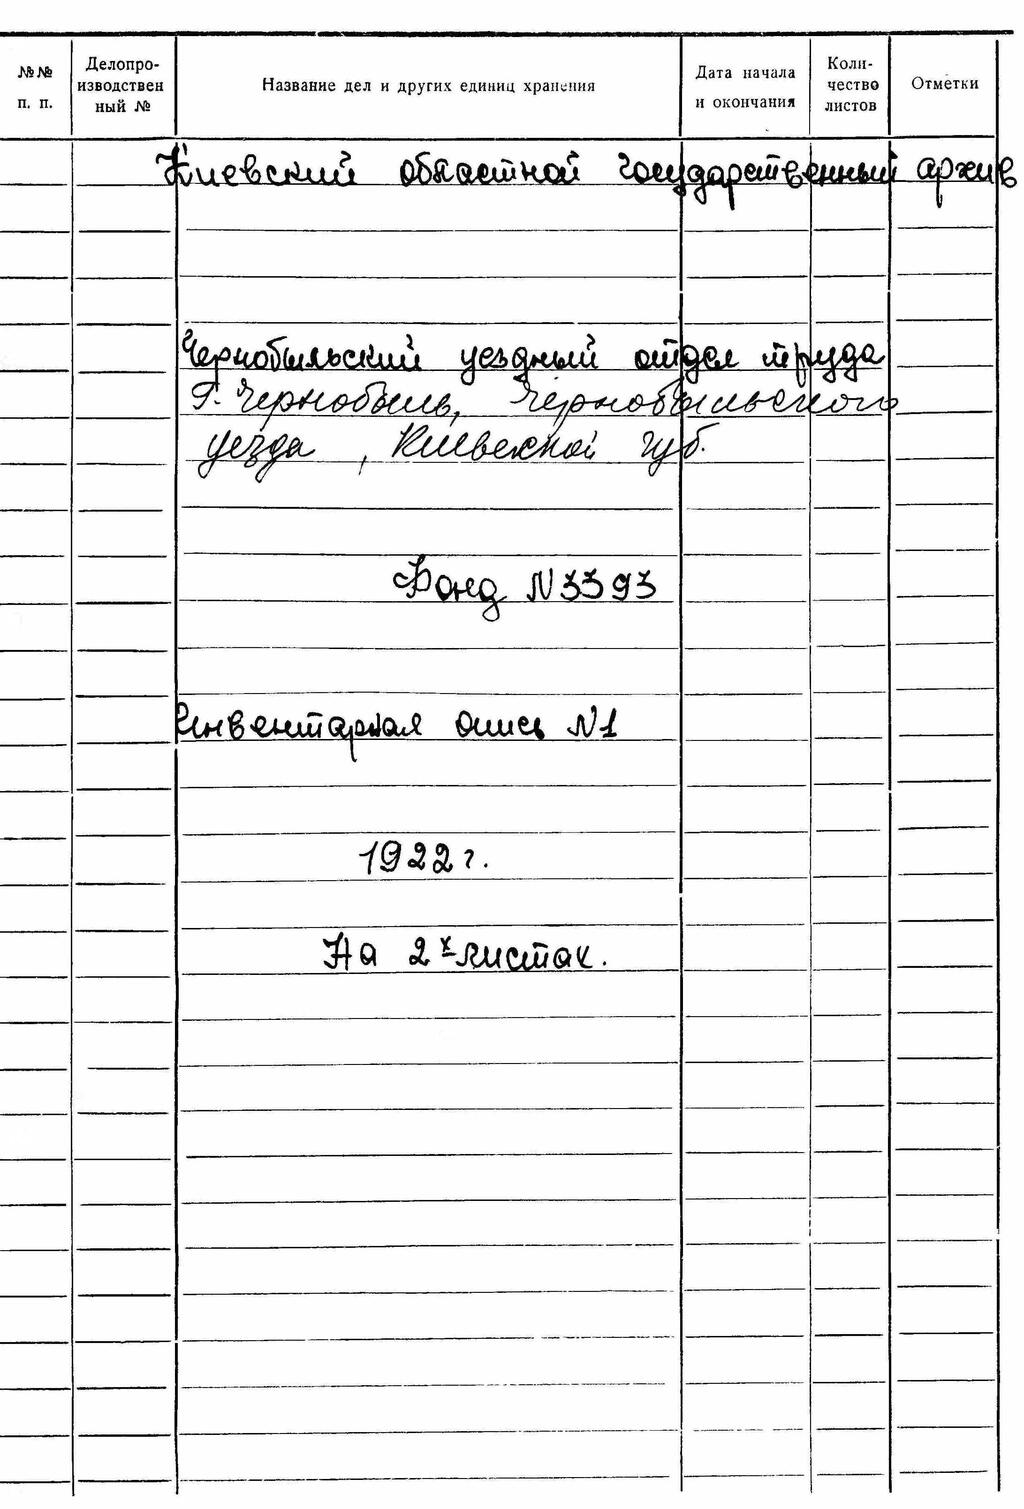 №№ п. п.
Делопро-
изводствен
ный №
Название дел и других единиц хранения
Дата начала
и окончания
Коли-
чество
листов
Отметки
Киевский областной государственный архив
Чернобыльский уездный отдел труда
г. Чернобыль, Чернобыльского
уезда, Киевской губ.
Фонд N 3393
Инвентарная опись N1
1922 г.
На 2х листах.